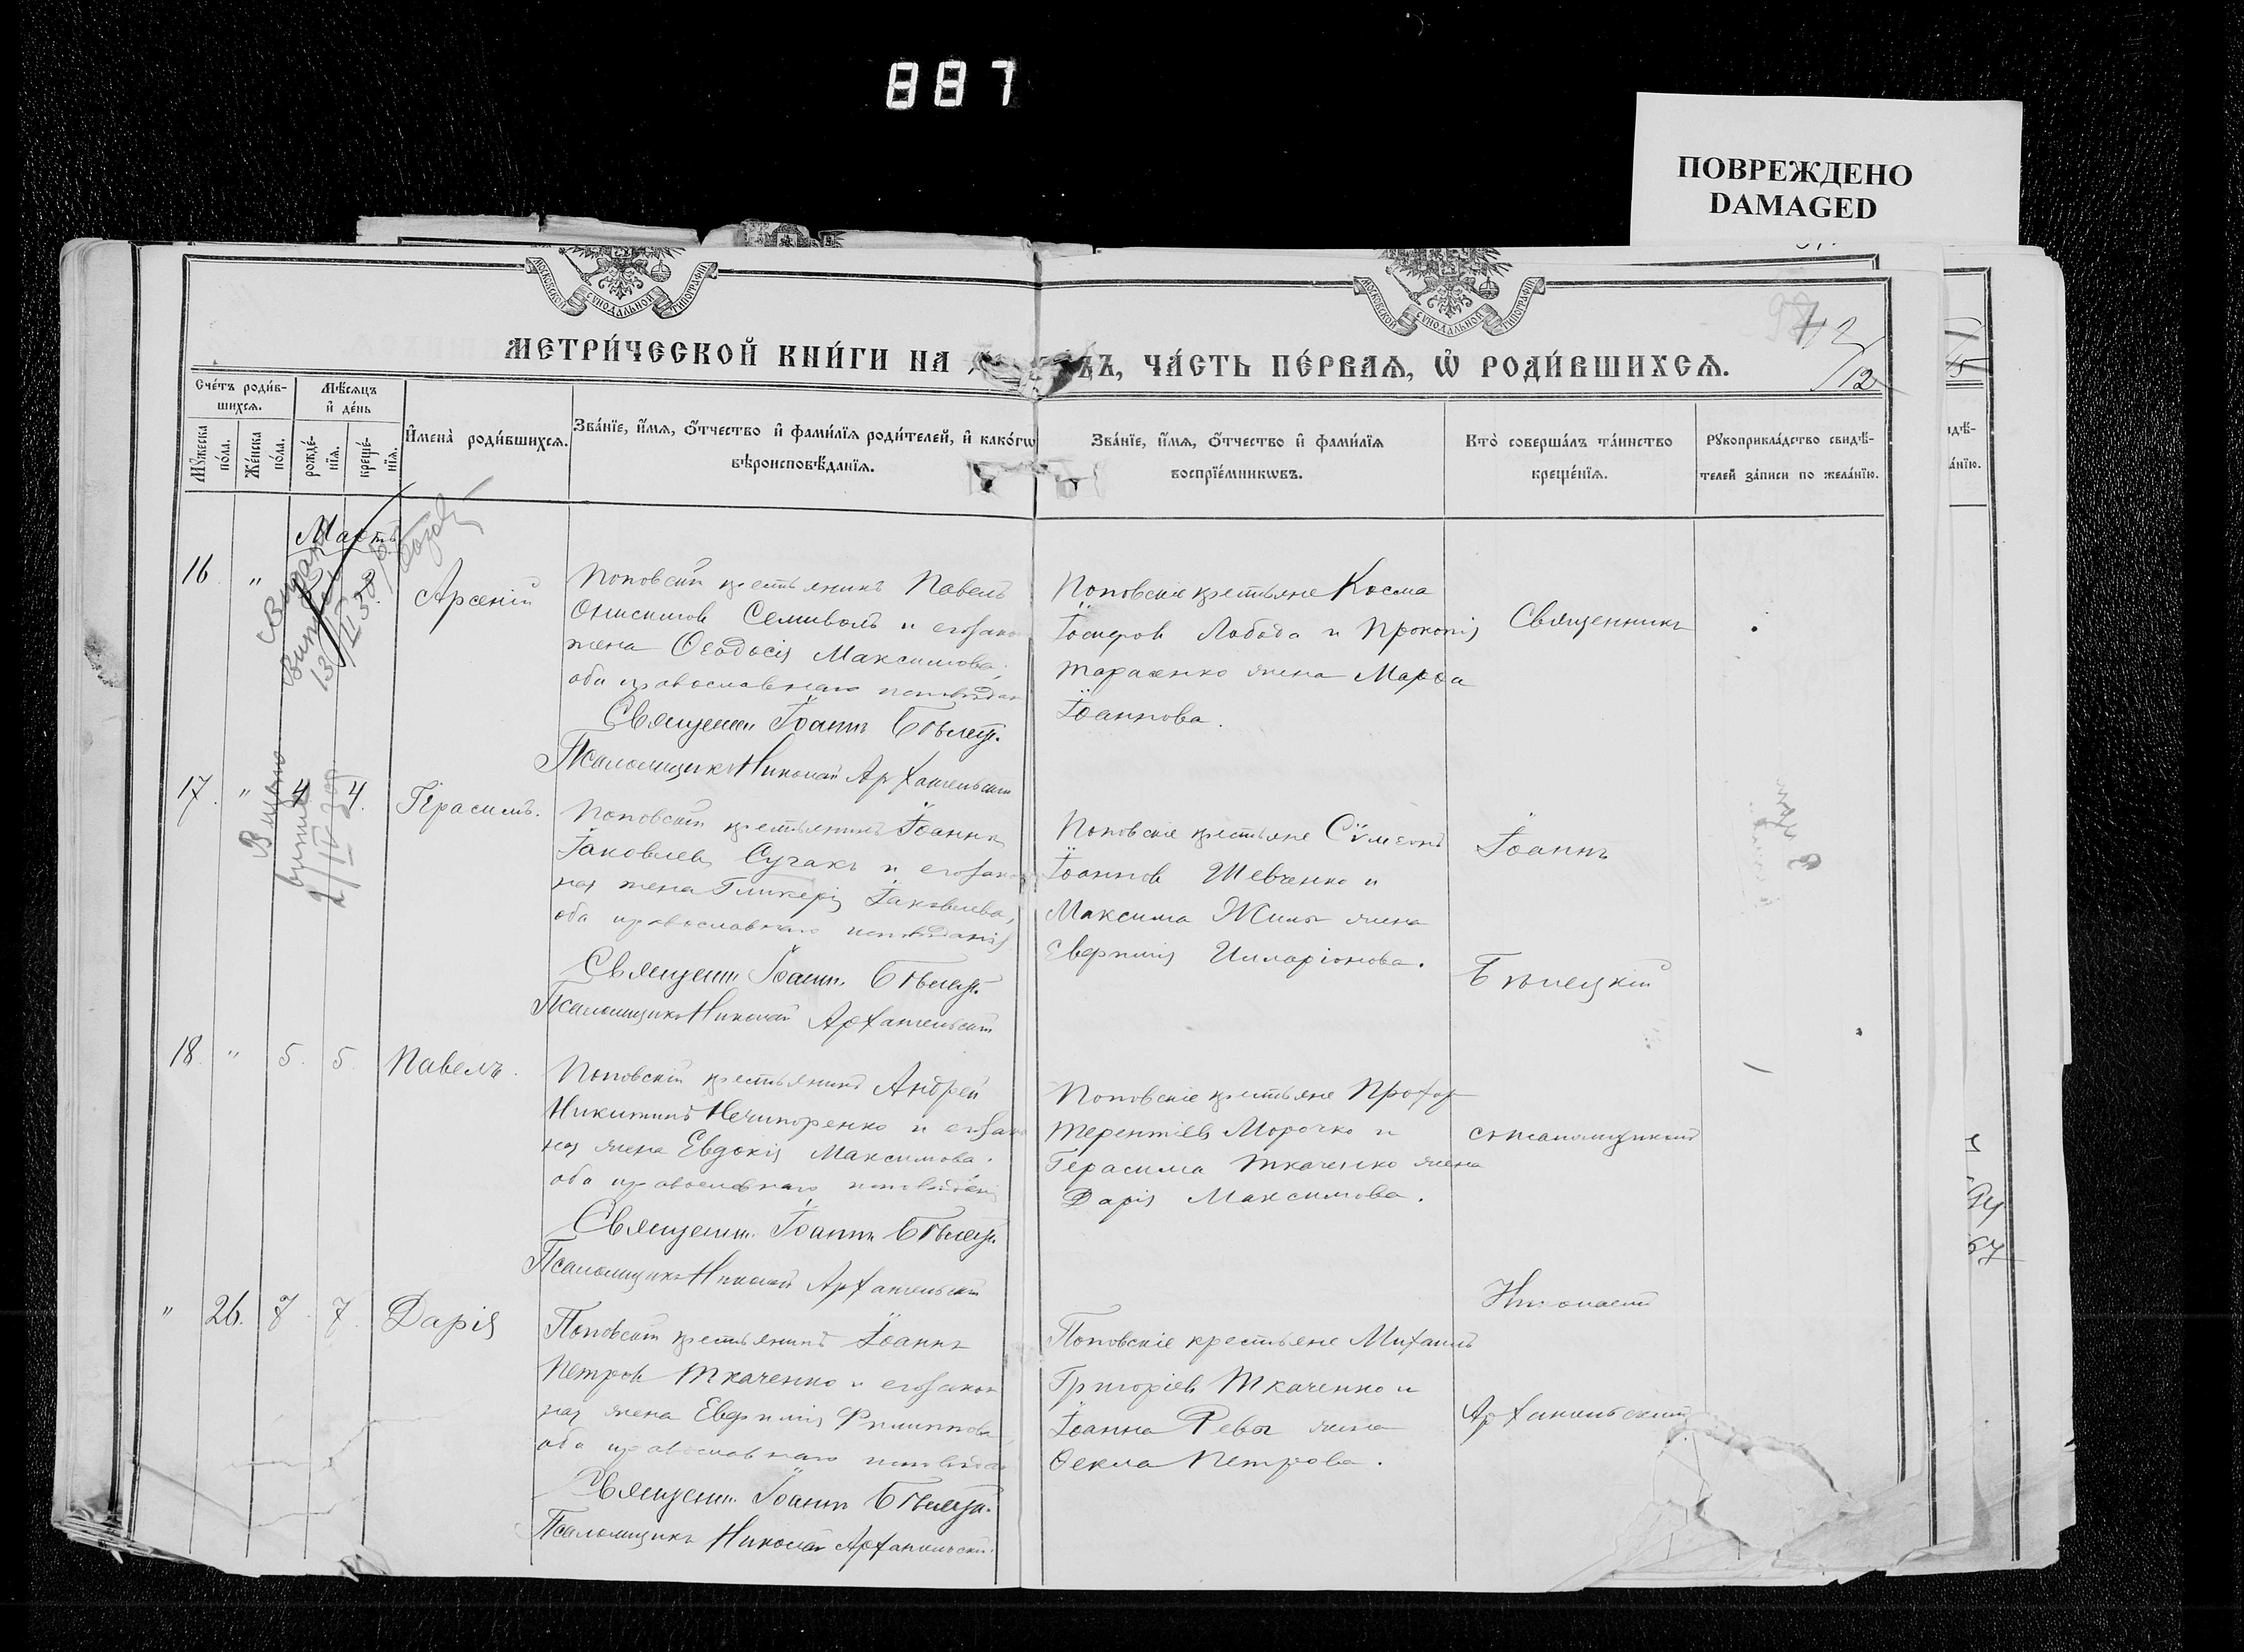 887
ПОВРЕЖДЕНО
DAMAGED
МОСКОВСКОЙ СѴНОДАЛЬНОЙ ТИПОГРАФІИ
МОСКОВСКОЙ СѴНОДАЛЬНОЙ ТИПОГРАФІИ
МЕТРИ́ЧЕСКОЙ КНИ́ГИ НА
ДЪ, ЧА́СТЬ ПЕ́РВАѦ, Ѿ РОДИ́ВШИХСѦ.
12
Сче́тъ роди́в-
шихсѧ.
Мѣ́сѧцъ
и҆ де́нь
Мꙋ́жеска
по́ла.
Же́нска
по́ла.
рожде́-
нїѧ.
креще́-
нїѧ.
И҆мена̀ роди́вшихсѧ.
Зва́нїе, и҆́мѧ, ѻ҆́тчество и҆ фами́лїѧ роди́телей, и҆ како́гѡ
вѣроисповѣ́данїѧ.
Зва́нїе, и҆́мѧ, ѻ҆́тчество и҆ фами́лїѧ
воспрїе́мникѡвъ.
Кто̀ соверша́лъ та́инство
креще́нїѧ.
Рꙋкоприкла́дство свидѣ́-
телей за́писи по жела́нїю.
Мартъ
16 " Арсеній
Поповскій крестьянинъ Павелъ
Онисимовъ Семиволъ и его закон
жена Ѳеодосія Максимова,
оба православнаго исповѣдан
Священн. Іоаннъ Бѣлец.
Псаломщикъ Николай Архангельскій
Поповскіе крестьяне Косма
Іосифовъ Лобода и Прокопія
Тараненко жена Марѳа
Іоаннова.
Священникъ
17. " 4 4. Герасимъ.
Поповскій крестьянинъ Іоаннъ
Іаковлевъ Сучакъ и его закон
ная жена Гликерія Іаковлева,
оба православнаго исповѣданія
Священн. Іоанн. Бѣлец.
Псаломщикъ Николай Архангельскій
Поповскіе крестьяне Сѵмеонъ
Іоанновъ Шевченко и
Максима Жилы жена
Евфимія Илларіонова.
Іоаннъ
Бѣлецкій
18. " 5. 5. Павелъ.
Поповскій крестьянинъ Андрей
Никитинъ Нечипоренко и его закон
ная жена Евдокія Максимова.
оба православнаго исповѣданія
Священн. Іоаннъ Бѣлец.
Псаломщикъ Николай Архангельскій
Поповскіе крестьяне Прохор
Терентіевъ Морочко и
Герасима Ткаченко жена
Дарія Максимова.
съ псаломщикомъ
" 26. 7. 7. Дарія
Поповскій крестьянинъ Іоаннъ
Петровъ Ткаченко и его закон
ная жена Евфимія Филиппова
оба православнаго исповѣдан
Священн. Іоаннъ Бѣлец.
Псаломщикъ Николай Архангельскій
Поповскіе крестьяне Михаилъ
Григоріевъ Ткаченко и
Іоанна Ревы жена
Ѳекла Петрова.
Николаемъ
Архангельскимъ